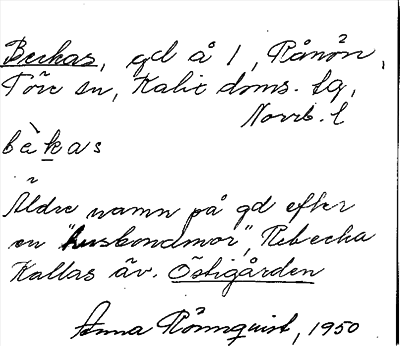 Beckas, gd å 1, Rånön,
Töre sn, Kalix doms. tg,
Norrb. l
bèkas
Äldre namn på gd efter
en "huskondmor", Rebecka
Kallas äv. Östigården
Anna Rönnquist, 1950